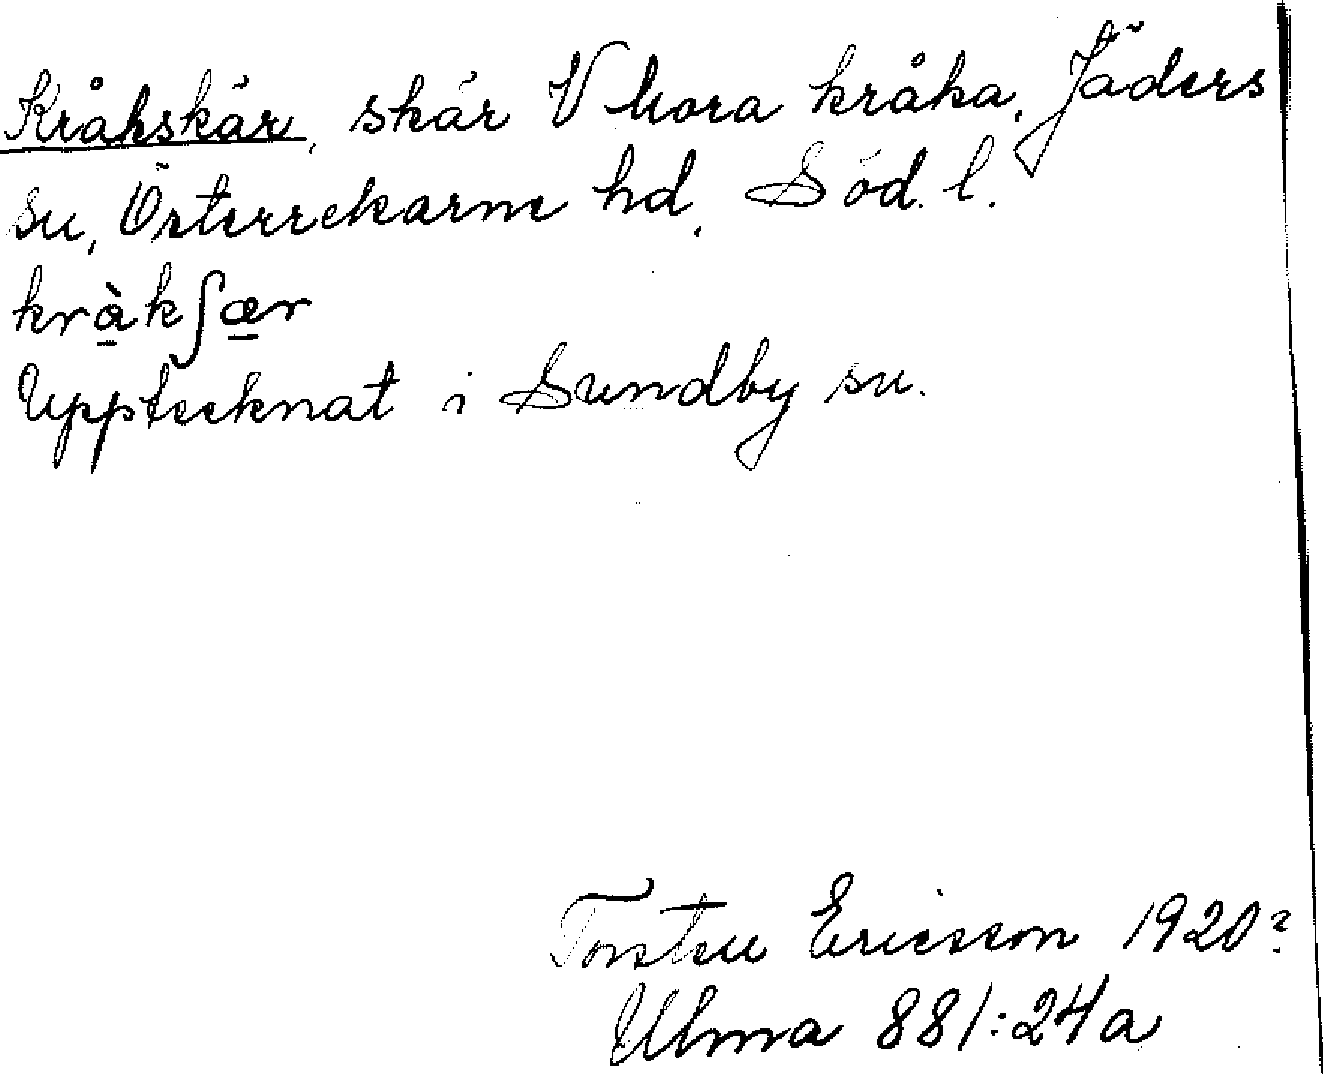 Kråkskär, skär V Mora kråka, Jäders
sn, Österrekarne hd, Söd. l.
kràkʃær
Upptecknat i Sundby sn.
Torsten Ericsson 1920?
Ulma 881:24a